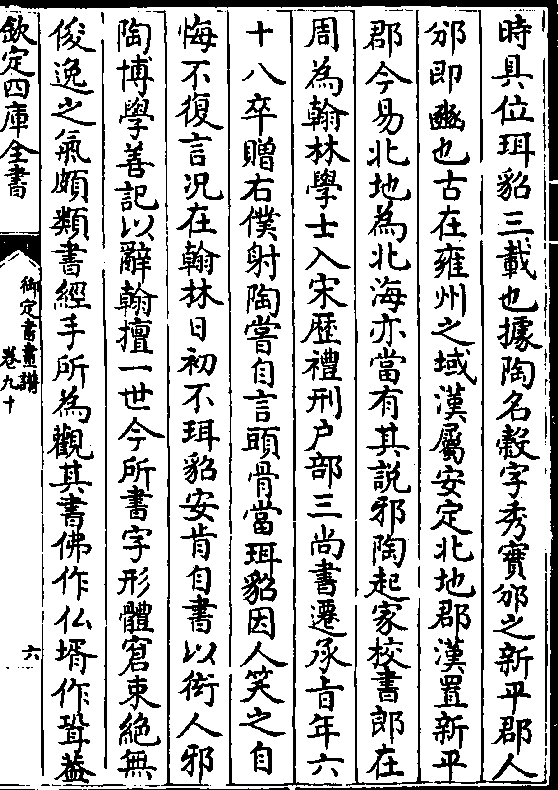 時具位珥貂三載也據陶名穀字秀實邠之新平郡人
邠即豳也古在雍州之域漢屬安定北地郡漢置新平
郡今易北地為北海亦當有其說邪陶起家校書郎在
周為翰林學士入宋歷禮刑户部三尚書遷承旨年六
十八卒贈右僕射陶嘗自言頭骨當珥貂因人笑之自
悔不復言况在翰林日初不珥貂安肯自書以衒人邪
陶博學善記以辭翰擅一世今所書字形體窘束絶無
俊逸之氣頗類書經手所為觀其書佛作仏壻作聟葢
欽定四庫全書
御定書畫譜
卷九十
六